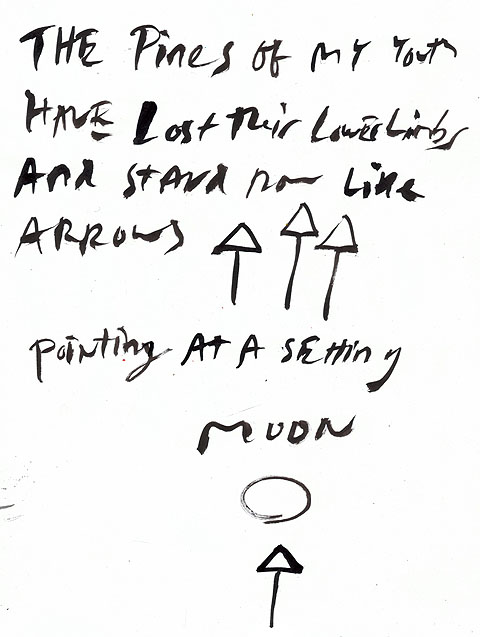 THE Pines of MY Youth
HAVE Lost Their Lower Limbs
And stand now Like
ARROWS
pointing At A setting
MOON